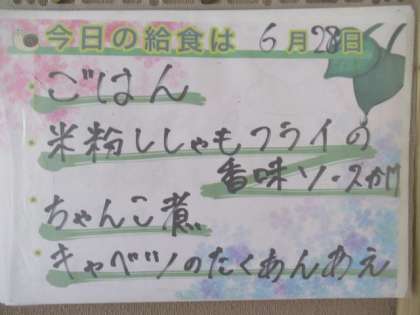 今日の給食は 6月28日
ごはん
米粉ししゃもフライの
香味ソースかけ
ちゃんこ煮
キャベツのたくあんあえ